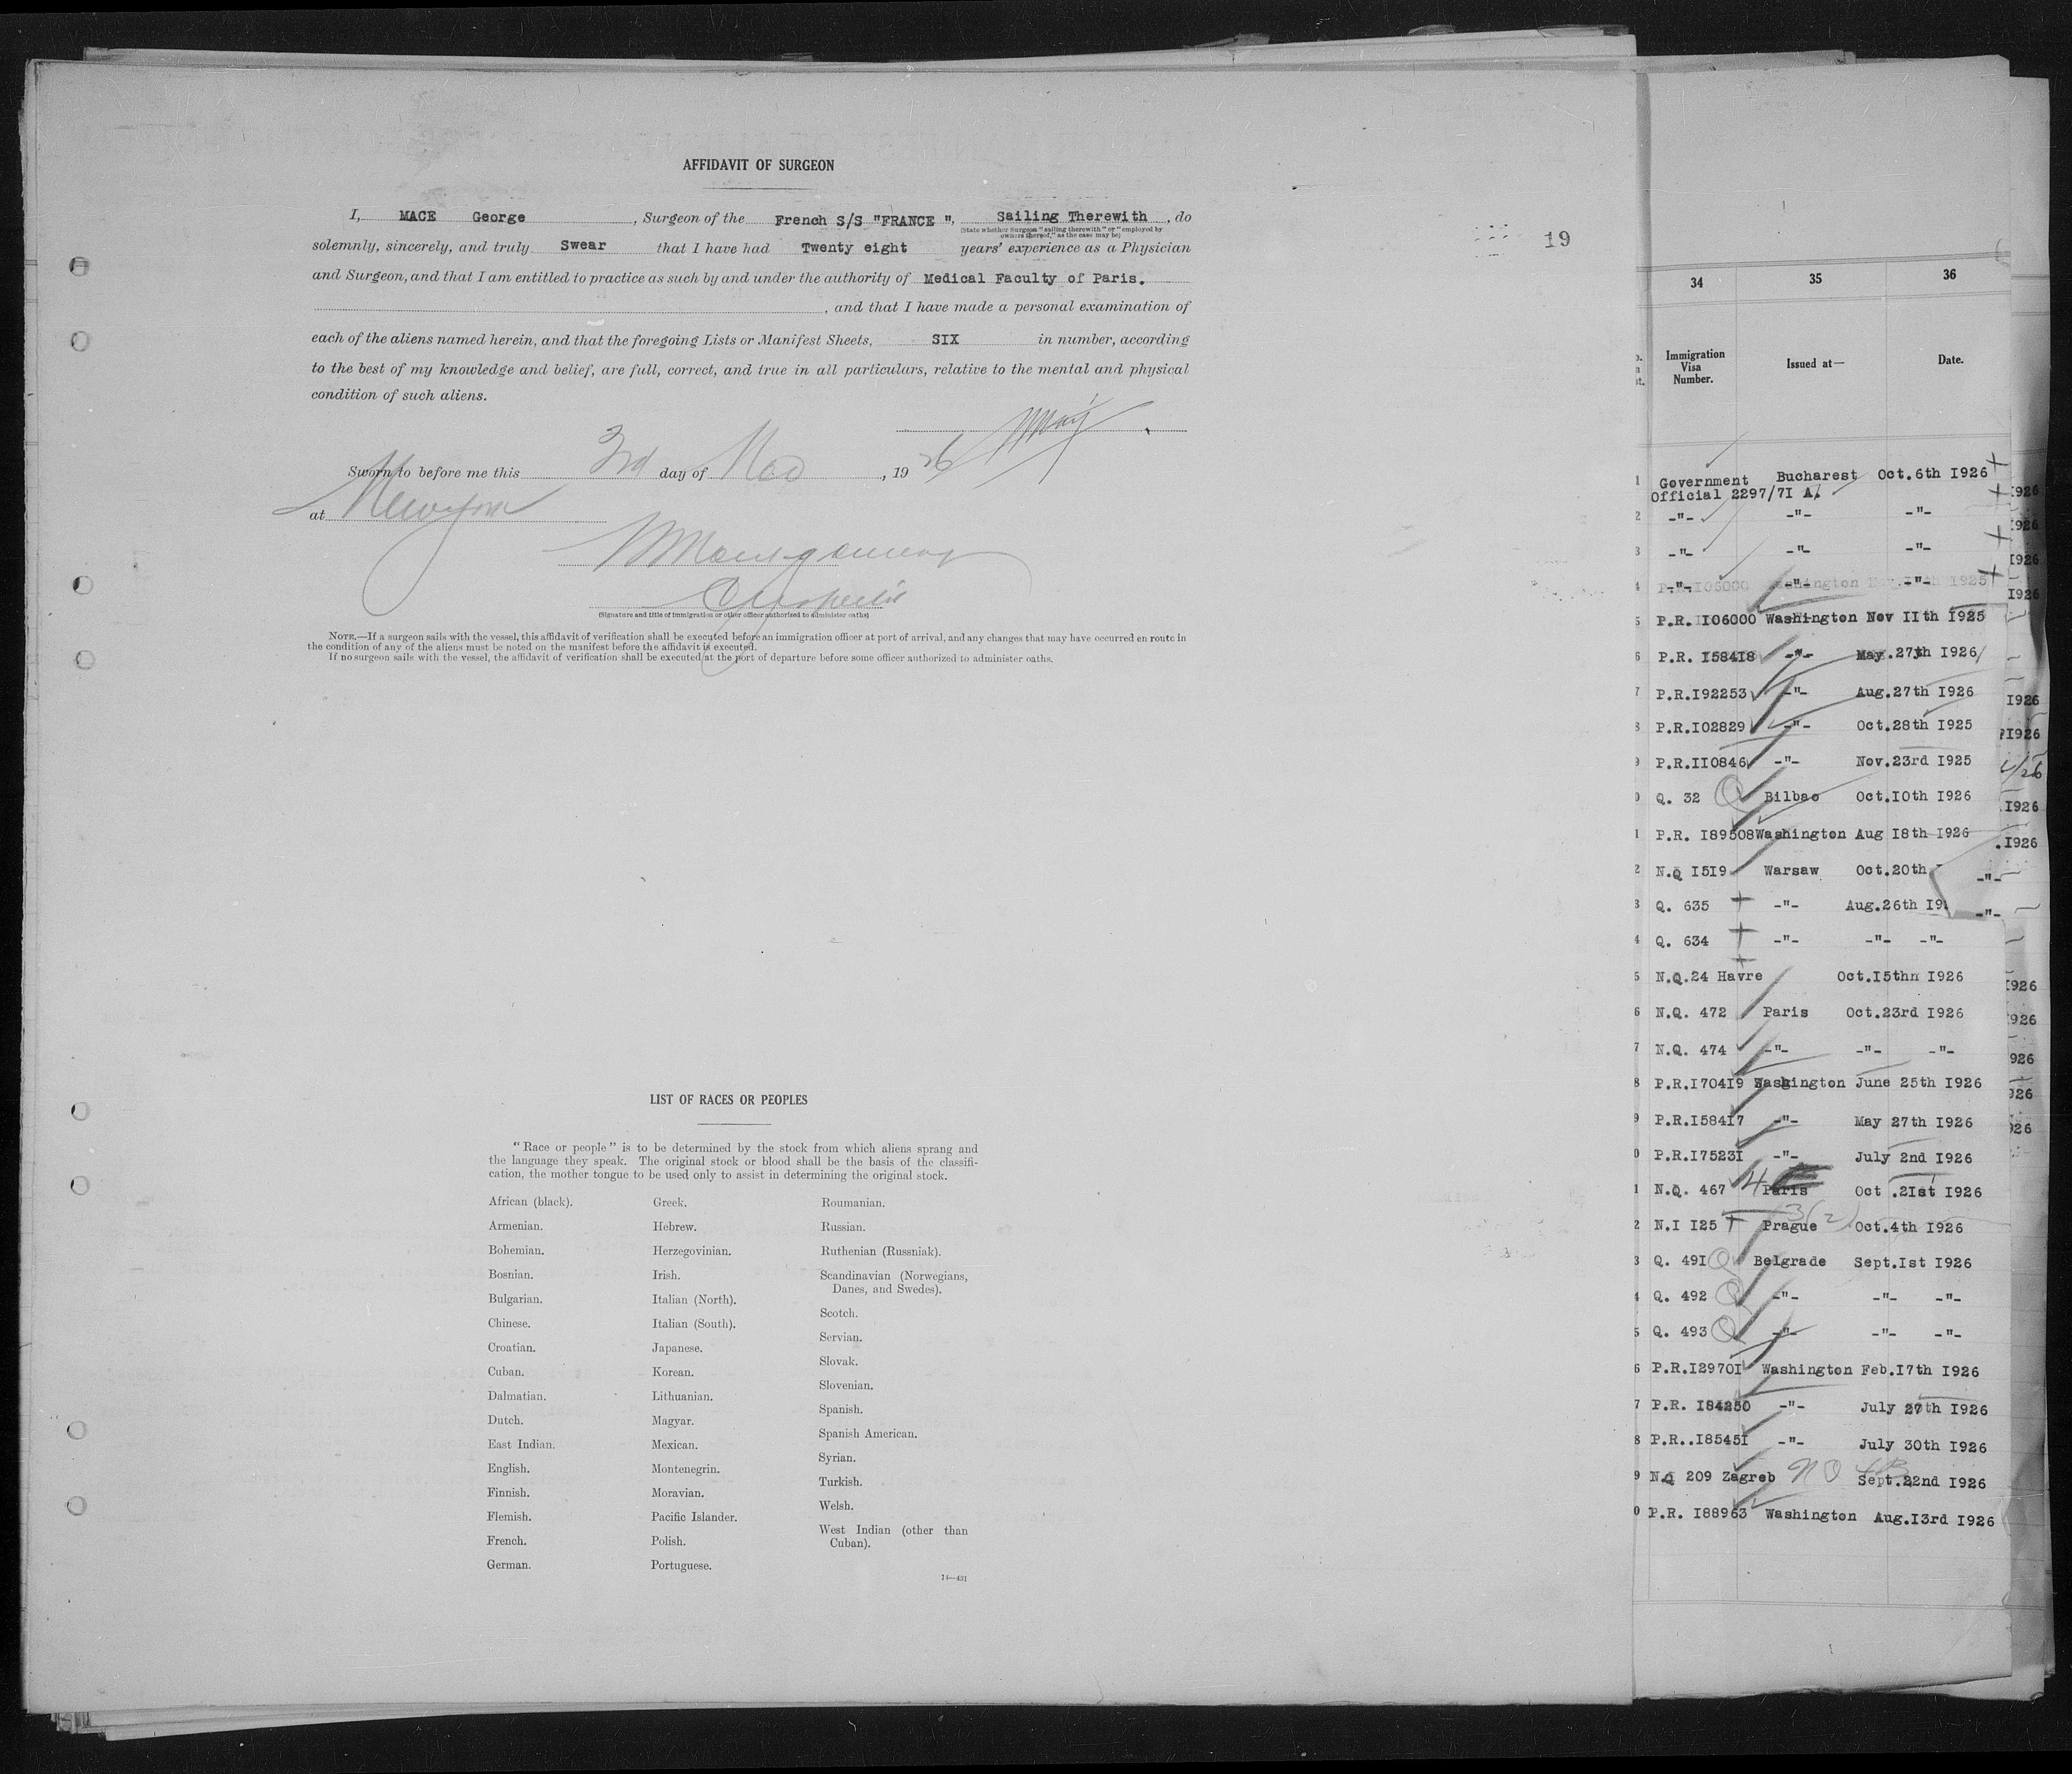 AFFIDAVIT OF SURGEON
I, MACE George, Surgeon of the French S/S "FRANCE ", Sailing Therewith, do
(State whether Surgeon "sailing therewith" or "employed by
owners thereof," as the case may be)
solemnly, sincerely, and truly Swear that I have had Twenty eight years' experience as a Physician
and Surgeon, and that I am entitled to practice as such by and under the authority of Medical Faculty of Paris.
, and that I have made a personal examination of
each of the aliens named herein, and that the foregoing Lists or Manifest Sheets, SIX in number, according
to the best of my knowledge and belief, are full, correct, and true in all particulars, relative to the mental and physical
condition of such aliens.
Sworn to before me this 3rd day of Nov, 1926
at New York
(Signature and title of immigration or other officer authorized to administer oaths)
NOTE.—If a surgeon sails with the vessel, this affidavit of verification shall be executed before an immigration officer at port of arrival, and any changes that may have occurred en route in
the condition of any of the aliens must be noted on the manifest before the affidavit is executed.
If no surgeon sails with the vessel, the affidavit of verification shall be executed at the port of departure before some officer authorized to administer oaths.
19
LIST OF RACES OR PEOPLES
"Race or people" is to be determined by the stock from which aliens sprang and
the language they speak. The original stock or blood shall be the basis of the classifi-
cation, the mother tongue to be used only to assist in determining the original stock.
African (black).
Armenian.
Bohemian.
Bosnian.
Bulgarian.
Chinese.
Croatian.
Cuban.
Dalmatian.
Dutch.
East Indian.
English.
Finnish.
Flemish.
French.
German.
Greek.
Hebrew.
Herzegovinian.
Irish.
Italian (North).
Italian (South).
Japanese.
Korean.
Lithuanian.
Magyar.
Mexican.
Montenegrin.
Moravian.
Pacific Islander.
Polish.
Portuguese.
Roumanian.
Russian.
Ruthenian (Russniak).
Scandinavian (Norwegians,
Danes, and Swedes).
Scotch.
Servian.
Slovak.
Slovenian.
Spanish.
Spanish American.
Syrian.
Turkish.
Welsh.
West Indian (other than
Cuban).
14—431
34 35 36
Immigration
Visa
Number.
Issued at—
Date.
1 Government Bucharest Oct. 6th I926
Official 2297/7I A.
2 -"- -"- -"-
3 -"- -"- -"-
4 -"- -"- -"-
5 P.R. I06000 Washington Nov IIth I925
6 P.R. I584I8 -"- May.27th I926
7 P.R.I92253 -"- Aug.27th I926
8 P.R.I02829 -"- Oct.28th I925
9 P.R.II0846 -"- Nov.23rd I925
0 Q. 32 Bilbao Oct.I0th I926
1 P.R. I89508 Washington Aug I8th I926
2 N.Q I5I9 Warsaw Oct.20th
3 Q. 635 -"- Aug.26th I9
4 Q. 634 -"- -"- -"-
5 N.Q.24 Havre Oct.I5thn I926
6 N.Q. 472 Paris Oct.23rd I926
7 N.Q. 474 -"- -"- -"-
8 P.R.I704I9 Washington June 25th I926
9 P.R.I584I7 -"- May 27th I926
0 P.R.I7523I -"- July 2nd I926
1 N.Q. 467 4 Paris Oct .2Ist I926
2 N.I I25 Prague 3(2) Oct.4th I926
3 Q. 49I Q Belgrade Sept.Ist I926
4 Q. 492 Q -"- -"- -"-
5 Q. 493 Q -"- -"- -"-
6 P.R.I2970I Washington Feb.I7th I926
7 P.R. I84250 -"- July 27th I926
8 P.R..I8545I -"- July 30th I926
9 N.Q 209 Zagreb NO Sept.22nd I926
0 P.R. I88963 Washington Aug.I3rd I926